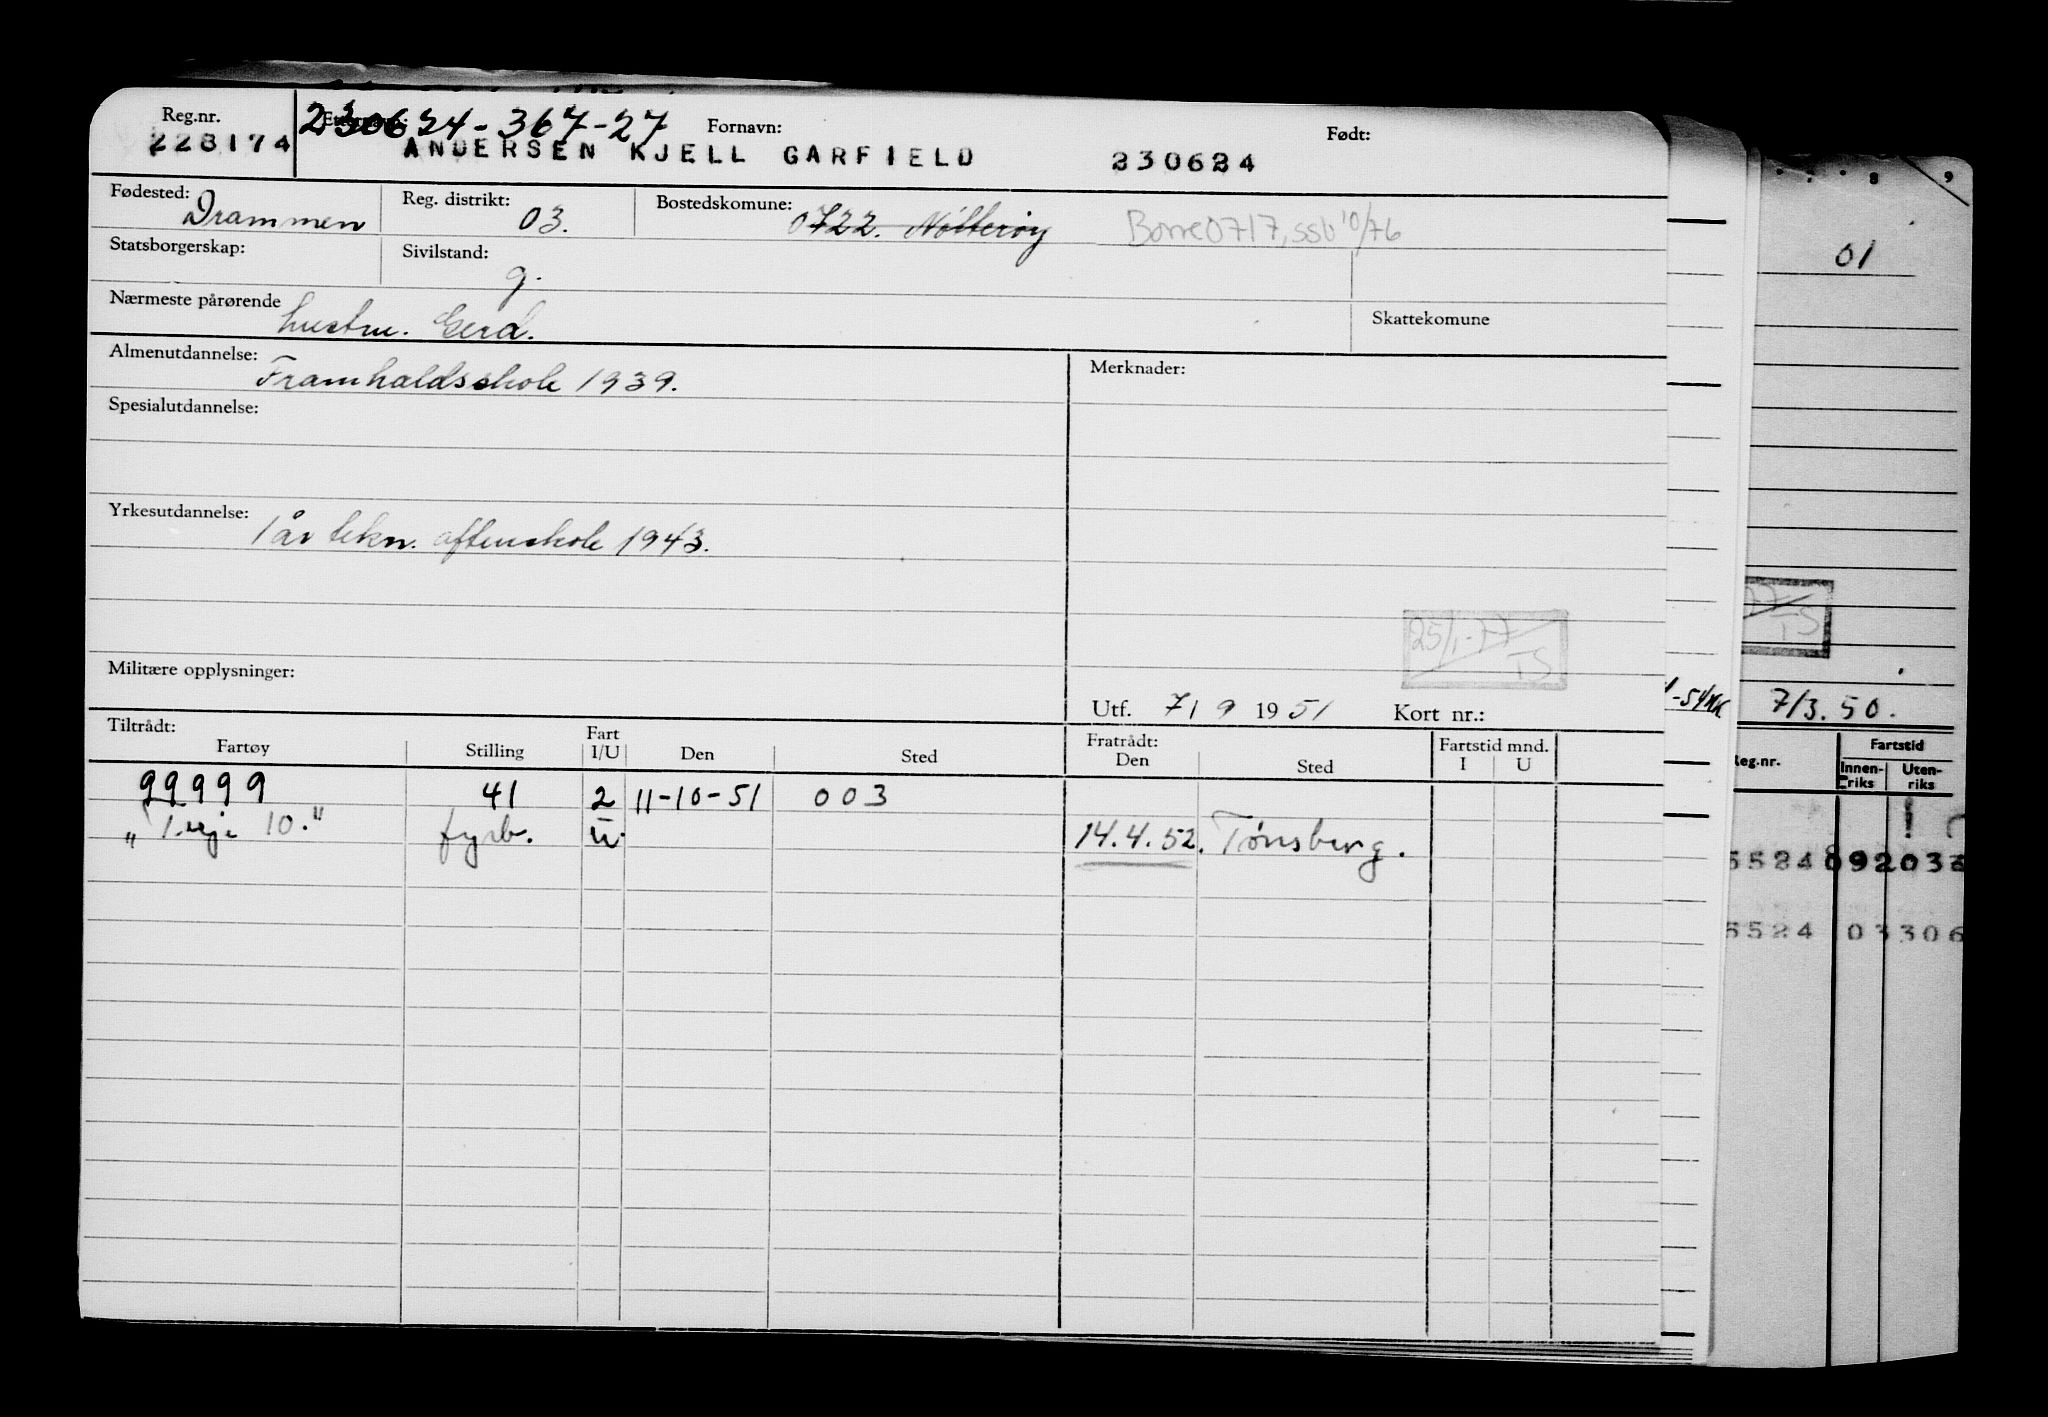 Reg.nr. 230624-367-27 Fornavn: Født:
228174 ANDERSEN KJELL GARFIELD 230624
Fødested: Drammen Reg. distrikt: 03. Bostedskomune: 0722. Nøtterøy Borre 0717, ssb 10/76
Statsborgerskap: Sivilstand: g.
Nærmeste pårørende hustru. Gerd. Skattekomune
Almenutdannelse: Framhaldsskole 1939. Merknader:
Spesialutdannelse:
Yrkesutdannelse: 1 år tekn. aftenskole 1943.
25/1-77
TS
Militære opplysninger:
Utf. 7/9 1951 Kort nr.:
Tiltrådt: Fart Fratrådt: Fartstid mnd.
Fartøy Stilling I/U Den Sted Den Sted I U
99999 41 2 11-10-51 003
"Terje 10." fyrb. u. 14.4.52. Tønsberg.
8 9
01
TS
-54
7/3.50.
Reg.nr. Fartstid
Innen-riks Uten-riks
5524 092036
5524 03306